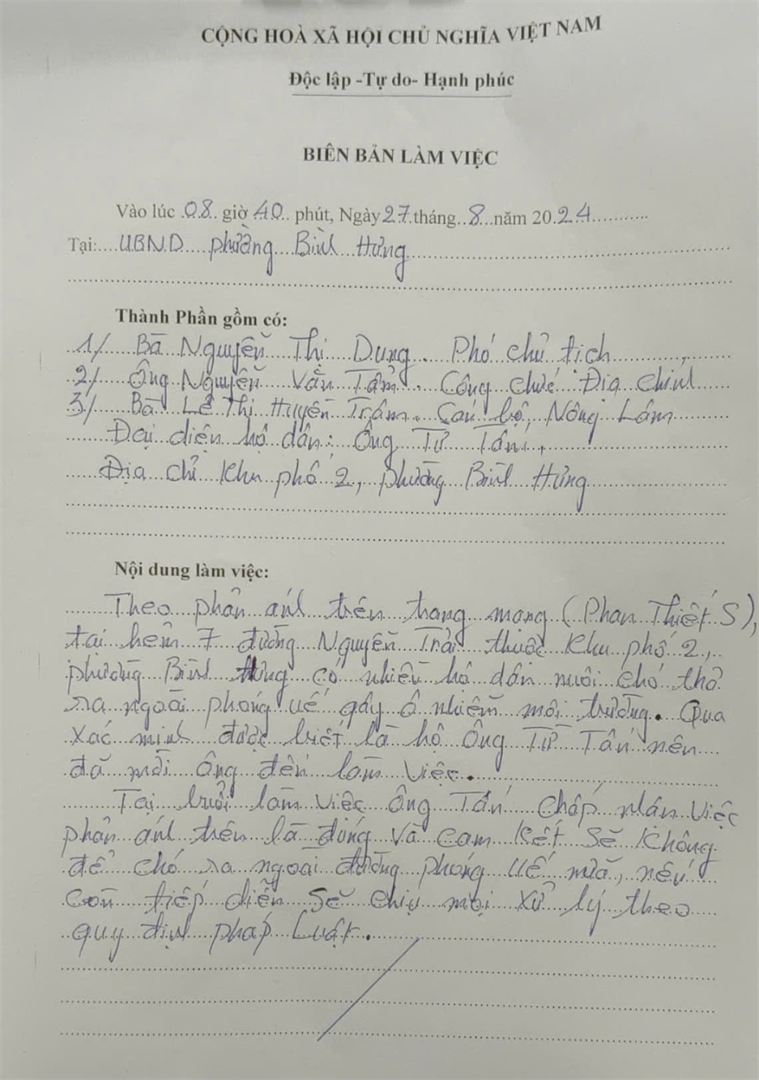 CỘNG HOÀ XÃ HỘI CHỦ NGHĨA VIỆT NAM
Độc lập -Tự do- Hạnh phúc
BIÊN BẢN LÀM VIỆC
Vào lúc 08 giờ 40 phút, Ngày 27 tháng 8 năm 2024
Tại: UBND phường Bình Hưng
Thành Phần gồm có:
1/ Bà Nguyễn Thị Dung. Phó chủ tịch
2/ Ông Nguyễn Văn Tâm. Công chức Địa chính
3/ Bà Lê Thị Huyền Trâm. Cán bộ, Nông Lâm
Đại diện hộ dân: Ông Từ Tấn,
Địa chỉ Khu phố 2, phường Bình Hưng
Nội dung làm việc:
Theo phản ánh trên trang mạng (Phan Thiết S),
tại hẻm 7 đường Nguyễn Trãi thuộc Khu phố 2,
phường Bình Hưng có nhiều hộ dân nuôi chó thả
ra ngoài phóng uế gây ô nhiễm môi trường. Qua
xác minh được biết là hộ Ông Từ Tấn nên
đã mời ông đến làm việc.
Tại buổi làm việc Ông Tấn chấp nhận việc
phản ánh trên là đúng và cam kết sẽ không
để chó ra ngoài đường phóng uế nữa, nếu
còn tiếp diễn sẽ chịu mọi xử lý theo
quy định pháp luật.